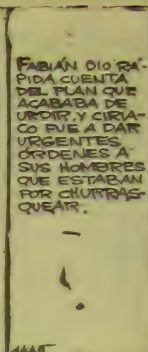 FABIÁN DIO RÁ-
PIDA CUENTA
DEL PLAN QUE
ACABABA DE
URDIR, Y CIRIA-
CO FUE A DAR
URGENTES
ÓRDENES A
SUS HOMBRES
QUE ESTABAN
POR CHURRAS-
QUEAR.